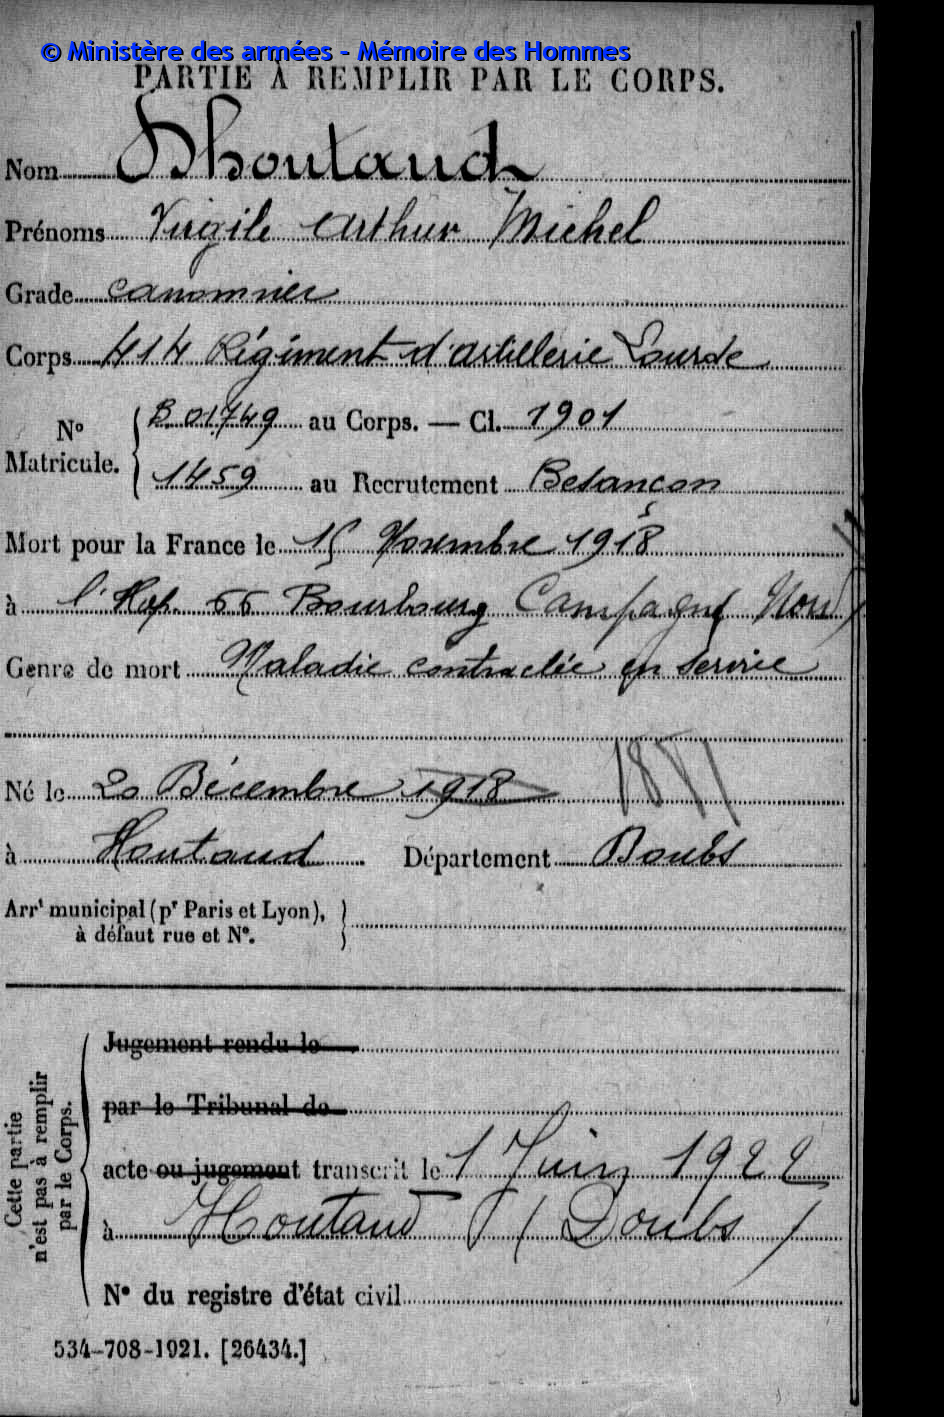 © Ministère des armées - Mémoire des Hommes
PARTIE À REMPLIR PAR LE CORPS.
Nom Dhoutaud
Prénoms Virgile Arthur Michel
Grade canonnier
Corps 414 Régiment d'artillerie Lourde
N° Matricule. B.01749 au Corps. — Cl. 1901
1459 au Recrutement Besançon
Mort pour la France le 15 Novembre 1918
à l'Hop. 66 Bourbourg Campagne Nord
Genre de mort Maladie contractée en service
Né le 20 Décembre 1918 1881
à Houtaud Département Doubs
Arrt municipal (pr Paris et Lyon),
à défaut rue et N°.
Cette partie
n'est pas à remplir
par le Corps.
Jugement rendu le
par le Tribunal de
acte ou jugement transcrit le 1 Juin 1922
à Houtaud (Doubs)
N° du registre d'état civil
534-708-1921. [26434.]